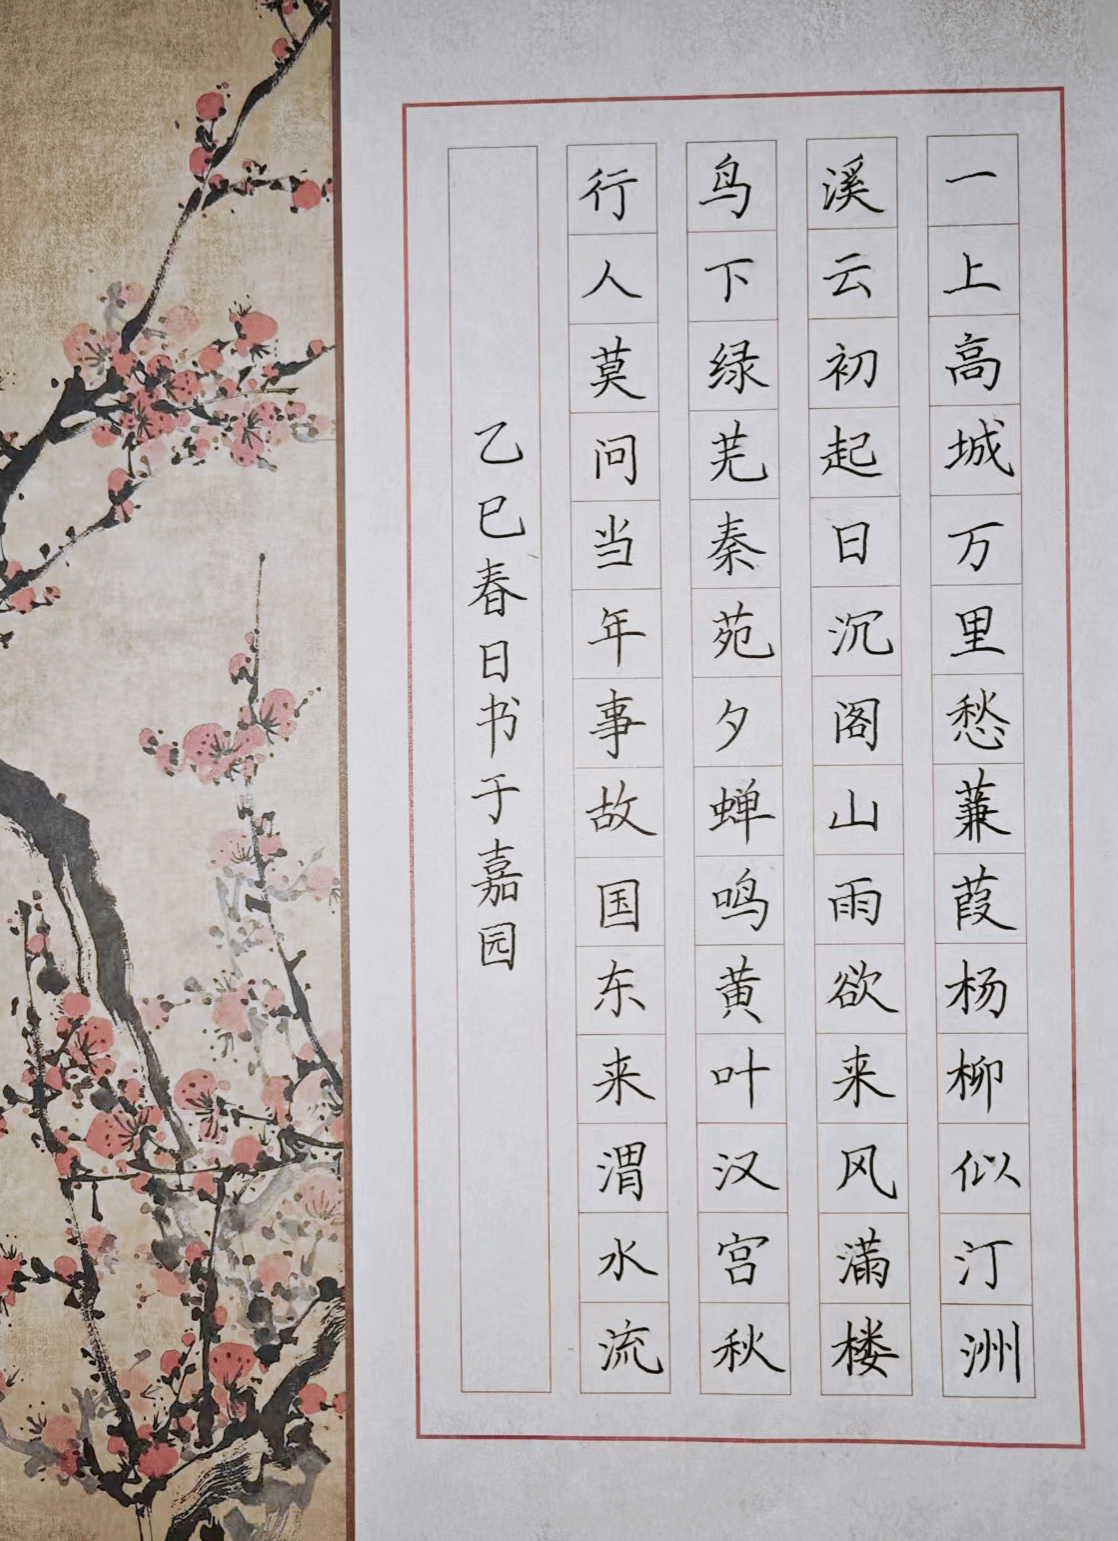 一上高城万里愁蒹葭杨柳似汀洲
溪云初起日沉阁山雨欲来风满楼
鸟下绿芜秦苑夕蝉鸣黄叶汉宫秋
行人莫问当年事故国东来渭水流
乙巳春日书于嘉园